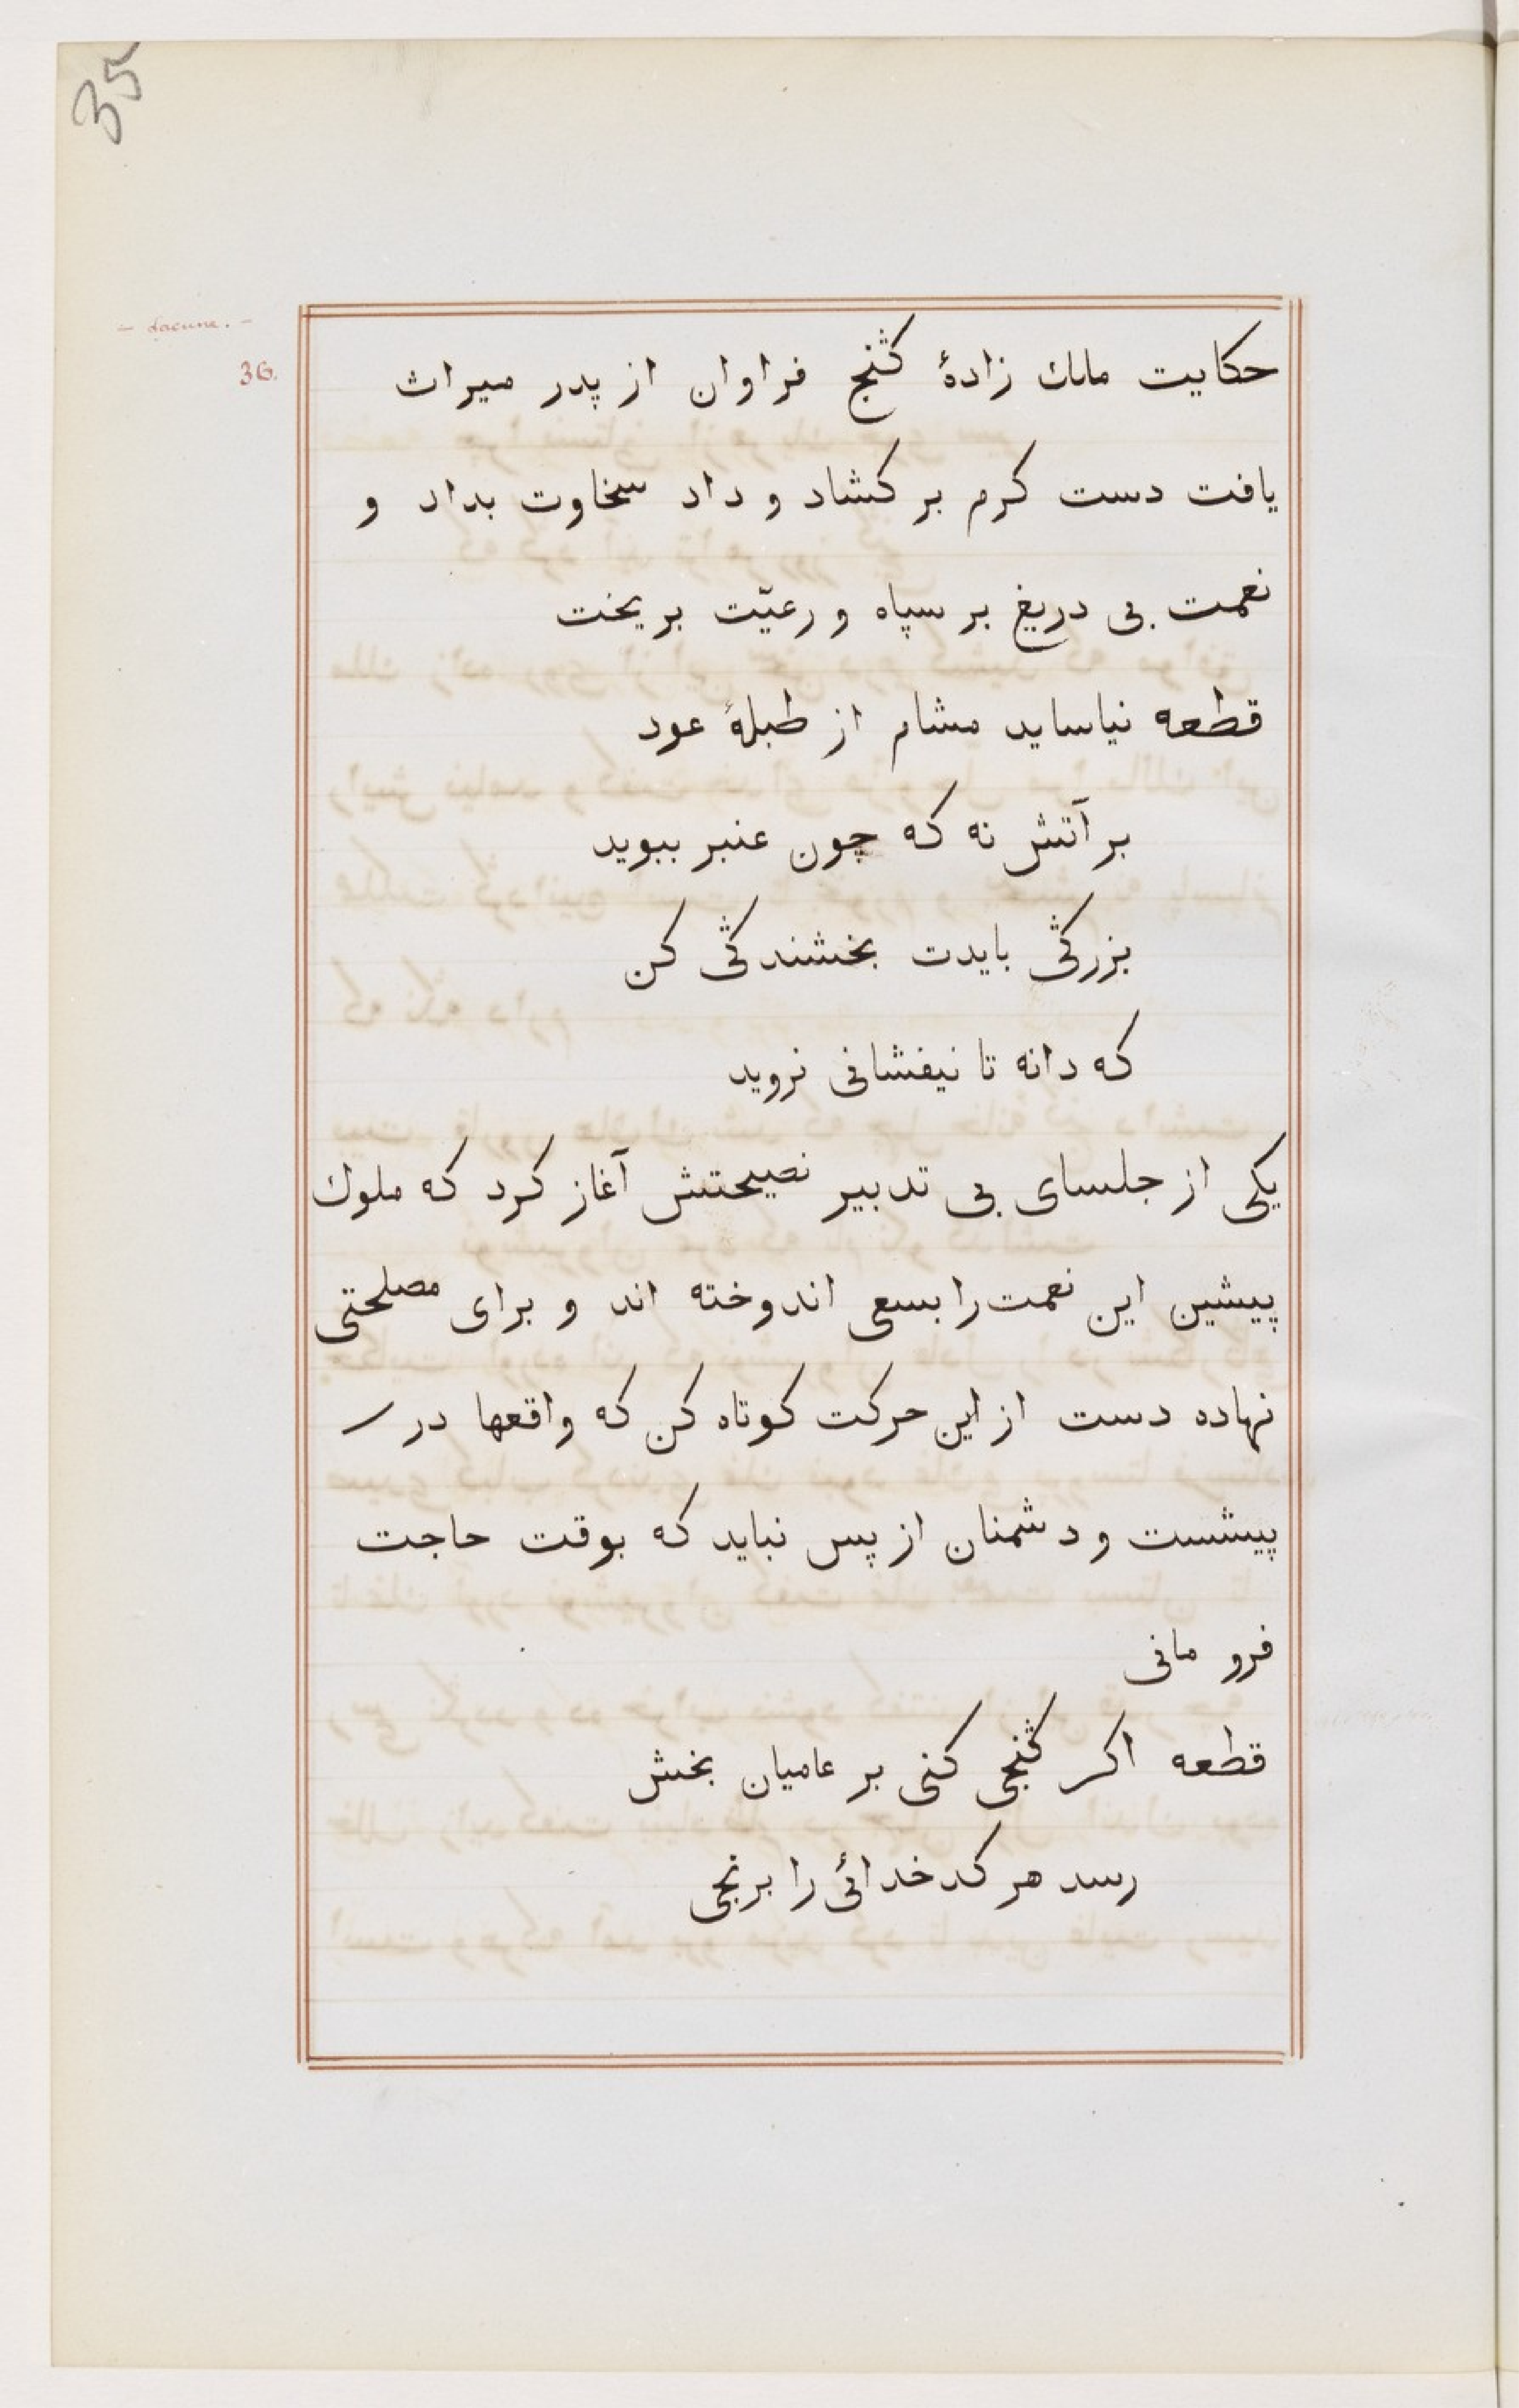 35
- Lacune. -
36.
حکایت ملك زادهٔ گنج فراوان از پدر میراث
یافت دست کرم بر کشاد و داد سخاوت بداد و
نعمت بی دریغ بر سپاه و رعیّت بریخت
قطعه نیاساید مشام از طبلهٔ عود
بر آتش نه که چون عنبر ببوید
بزرگی بایدت بخشندگی کن
که دانه تا نیفشانی نروید
یکی از جلسای بی تدبیر نصیحتش آغاز کرد که ملوك
پیشین این نعمت را بسعی اندوخته اند و برای مصلحتی
نهاده دست از این حرکت کوتاه کن که واقعها در
پیشست و دشمنان از پس نباید که بوقت حاجت
فرو مانی
قطعه اکر گنجی کنی بر عامیان بخش
رسد هر کدخدائی را برنجی